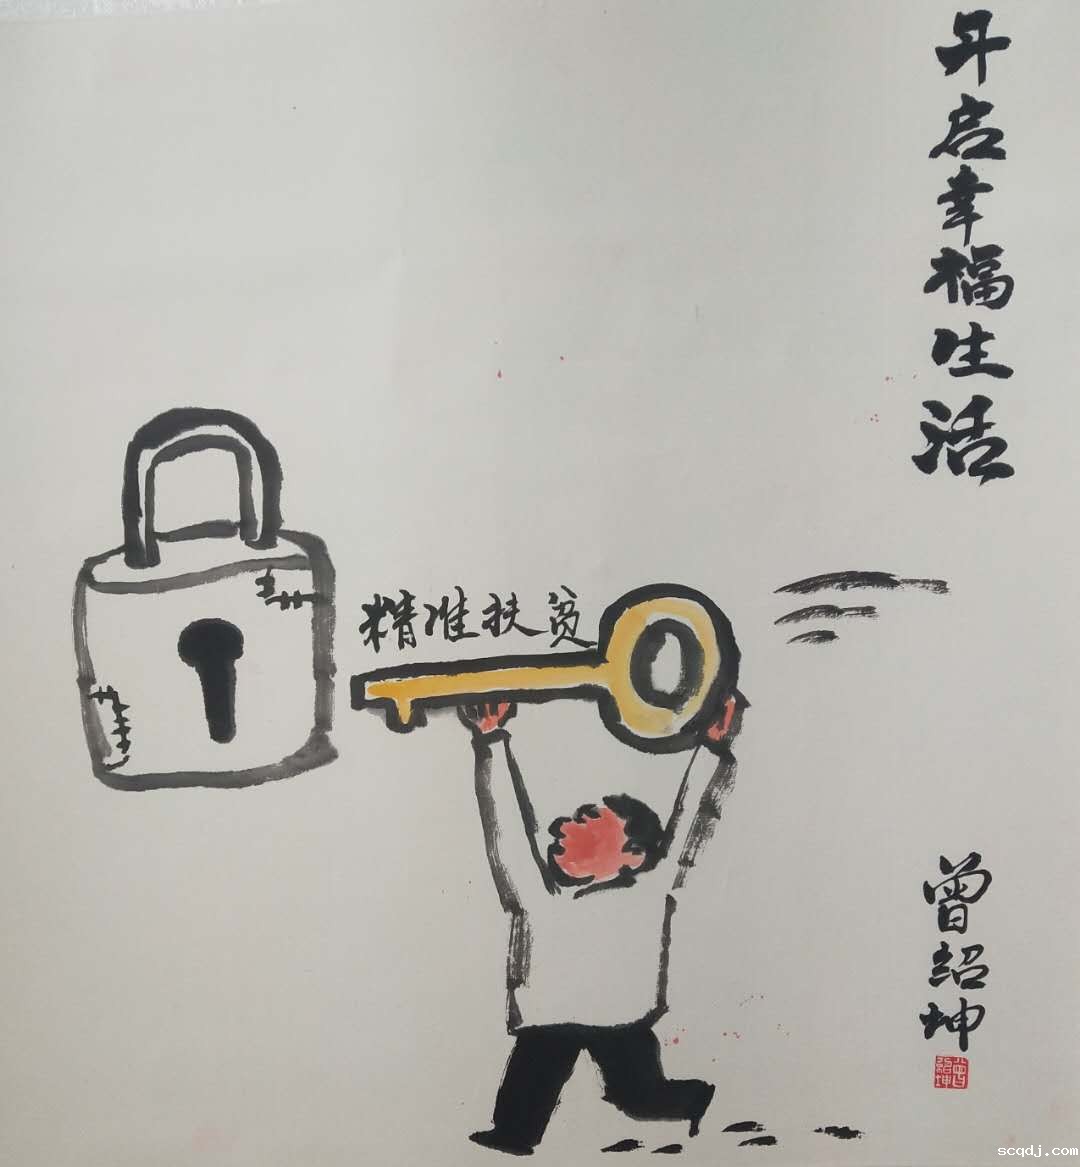 开启幸福生活
精准扶贫
曾绍坤
曾绍坤
scqdj.com